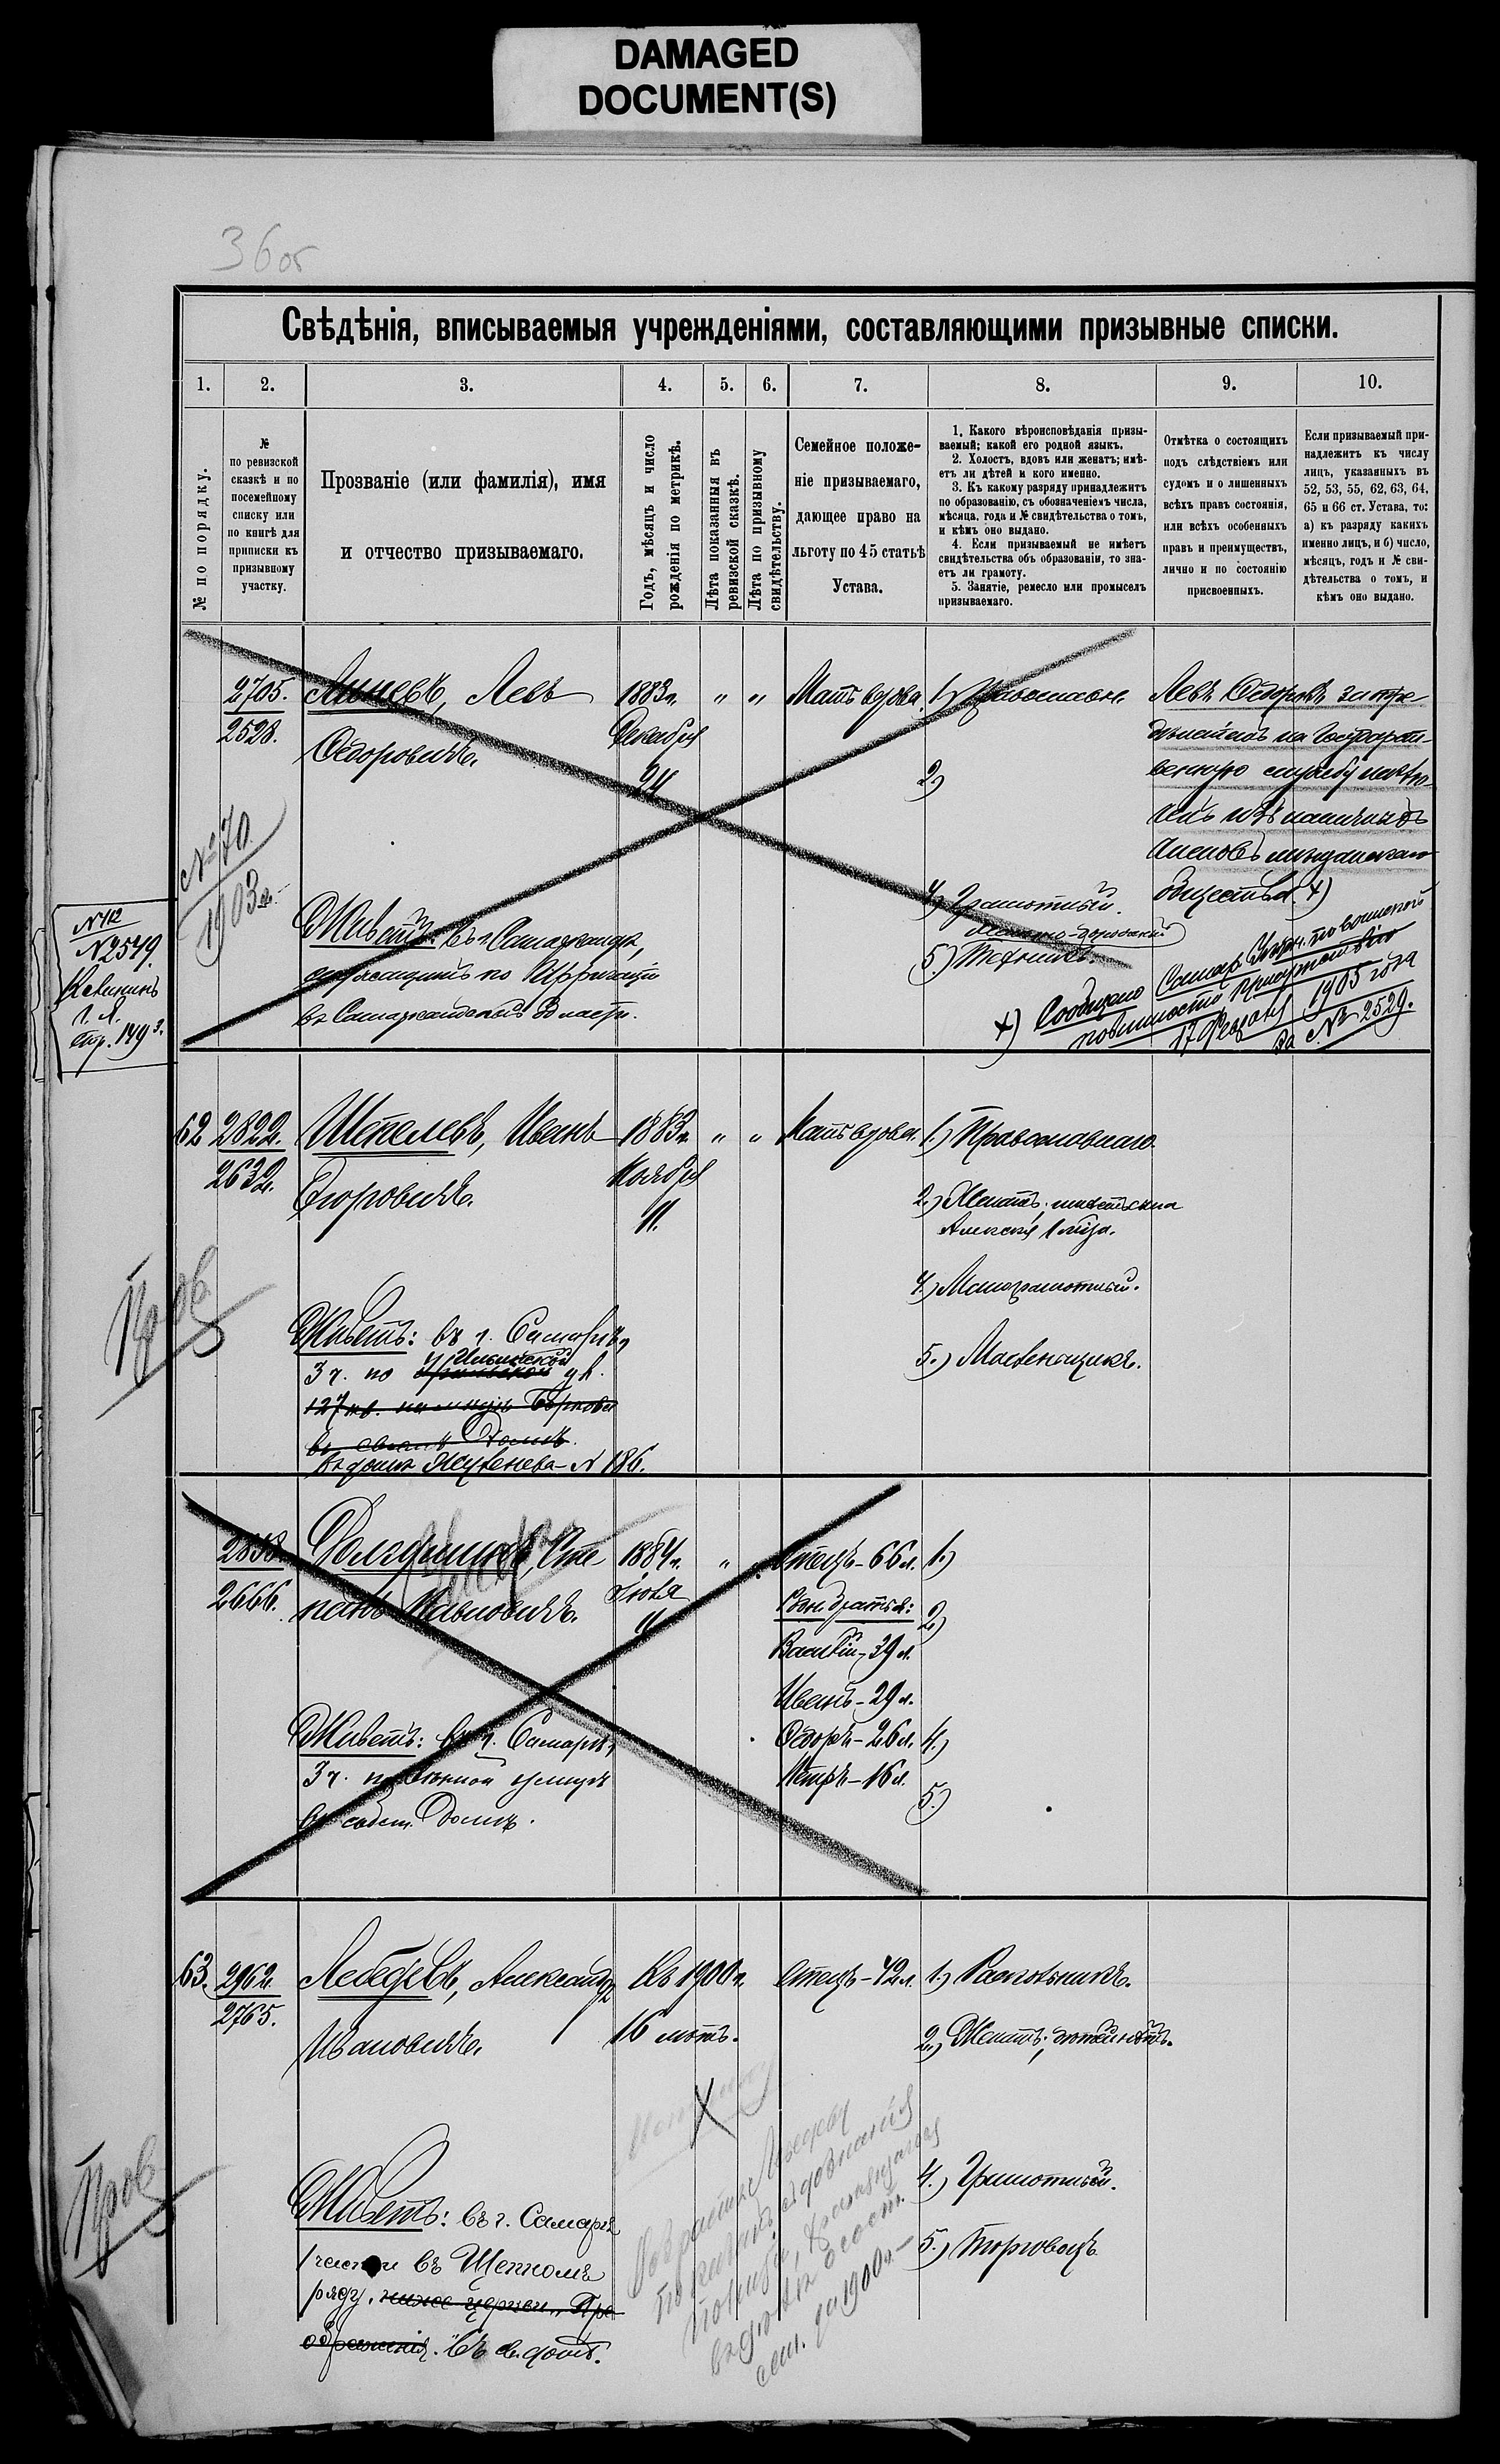 DAMAGED
DOCUMENT(S)
36об
Свѣдѣнія, вписываемыя учрежденіями, составляющими призывные списки.
1. 2. 3. 4. 5. 6. 7. 8. 9. 10.
№ по порядку.
№
по ревизской
сказкѣ и по
посемейному
списку или
по книгѣ для
приписки къ
призывному
участку.
Прозваніе (или фамилія), имя
и отчество призываемаго.
Годъ, мѣсяцъ и число
рожденія по метрикѣ.
Лѣта показанныя въ
ревизской сказкѣ.
Лѣта по призывному
свидѣтельству.
Семейное положе-
ніе призываемаго,
дающее право на
льготу по 45 статьѣ
Устава.
1. Какого вѣроисповѣданія призы-
ваемый; какой его родной языкъ.
2. Холостъ, вдовъ или женатъ; имѣ-
етъ ли дѣтей и кого именно.
3. Къ какому разряду принадлежитъ
по образованію, съ обозначеніемъ числа,
мѣсяца, года и № свидѣтельства о томъ,
и кѣмъ оно выдано.
4. Если призываемый не имѣетъ
свидѣтельства объ образованіи, то зна-
етъ ли грамоту.
5. Занятіе, ремесло или промыселъ
призываемаго.
Отмѣтка о состоящихъ
подъ слѣдствіемъ или
судомъ и о лишенныхъ
всѣхъ правъ состоянія,
или всѣхъ особенныхъ
правъ и преимуществъ,
лично и по состоянію
присвоенныхъ.
Если призываемый при-
надлежитъ къ числу
лицъ, указанныхъ въ
52, 53, 55, 62, 63, 64,
65 и 66 ст. Устава, то:
а) къ разряду какихъ
именно лицъ, и б) число,
мѣсяцъ, годъ и № сви-
дѣтельства о томъ, и
кѣмъ оно выдано.
2705.
2528.
Линевъ, Левъ
Ѳедоровичъ.
1883 г.
Декабря
24
" "
Мать вдова.
1) Православн.
2)
4) Грамотный.
5) Техникъ.
Левъ Ѳедоровъ за опре
дѣленіемъ на Государст-
венную службу исклю-
ченъ изъ наличныхъ
членовъ мѣщанскаго
общества. +)
+) Сообщено Самар. Уѣздн. по воинской
повинности присутствію
17 Февраля 1905 года
за № 2529.
№ 70
1903 г.
№ 12
№ 2549.
1. Я.
стр. 149
Живетъ: въ г. Самаркандѣ,
по Ирригаціи
въ Самаркандской Област.
62 2822.
2632.
Шепелевъ, Иванъ
Егоровичъ.
1883 г.
Ноября
11.
" "
Мать вдова.
1.) Православнаго.
2.) Женатъ; имѣетъ сына
Алексѣя 1 года.
4.) Малограмотный.
5.) Масленщикъ.
Пров
Живетъ: въ г. Самарѣ,
3 ч. по Ильинской ул.
въ своемъ домѣ.
въ домѣ № 186.
2858.
2666.
Сте
панъ
1884 г.
Іюля
11
" "
отецъ - 66 л.
Род. братья:
Василій - 39 л.
Иванъ - 29 л.
Ѳедоръ - 26 л.
Петръ - 16 л.
1.)
2)
4.)
5.)
Живетъ: въ г. Самарѣ,
3 ч. по улицѣ
въ собст. домѣ.
63. 2962.
2765.
Лебедевъ, Александръ
Ивановичъ.
Въ 1900 г.
16 лѣтъ.
отецъ - 42 л.
1.) Раскольникъ.
2.) Женатъ; дѣтей нѣтъ.
4.) Грамотный.
5.) Торговецъ.
Пров
Живетъ: въ г. Самарѣ
1 части въ Щепномъ
ряду, ниже церкви „Пре
ображенія." въ св. домѣ.